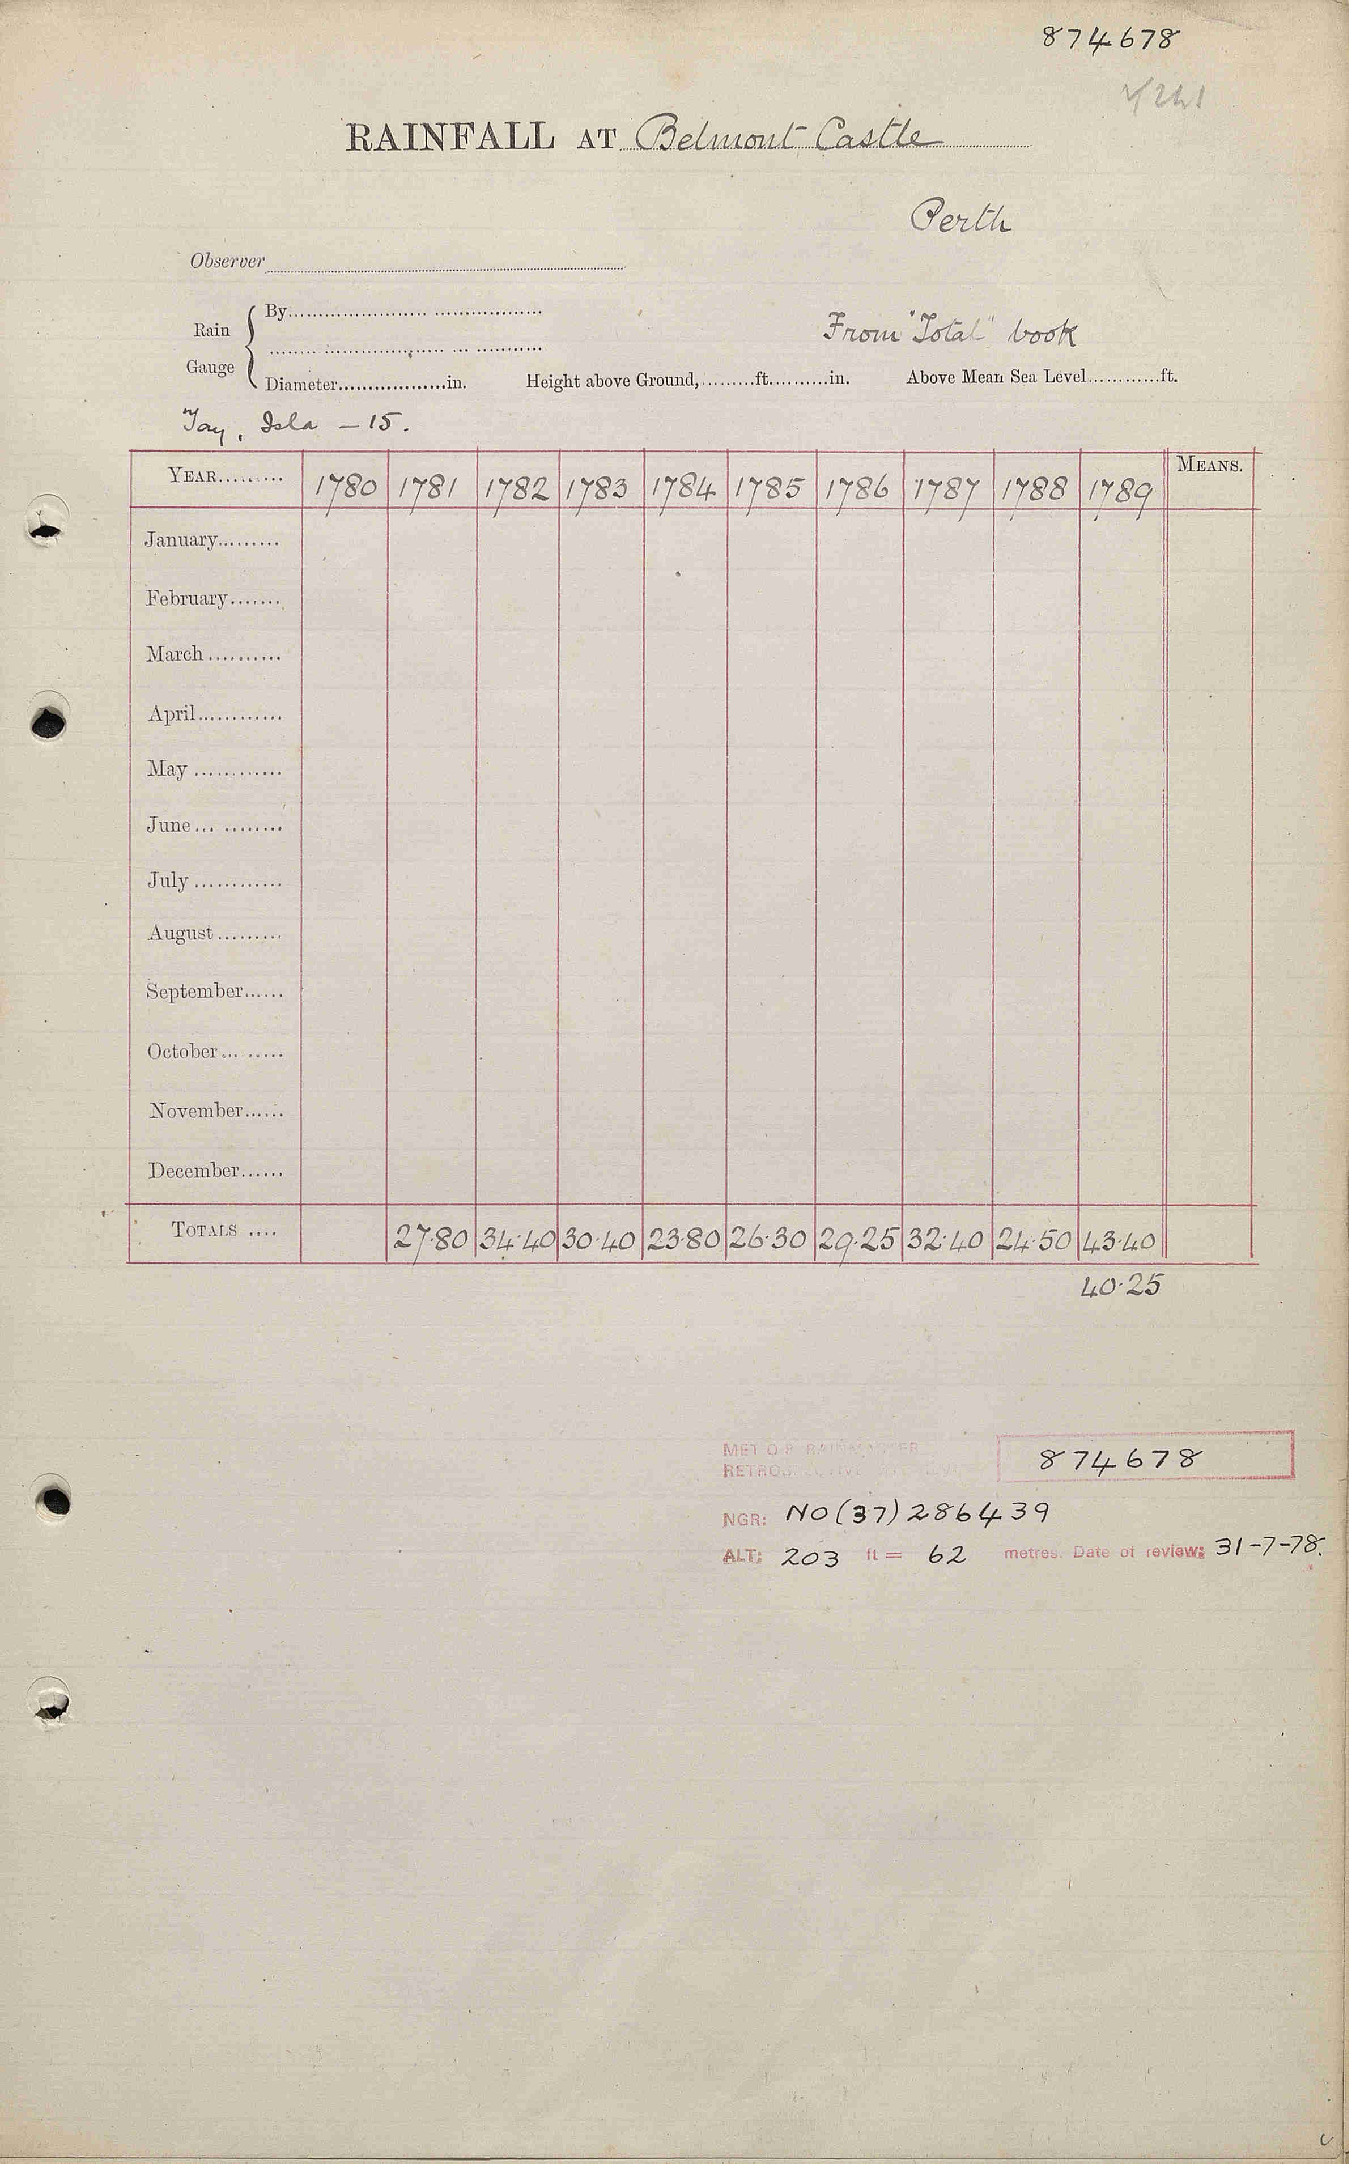 874678
RAINFALL AT Belmont Castle
Perth
Observer
Rain Gauge
By
From "Total" book
Diameter in. Height above Ground, ft. in. Above Mean Sea Level ft.
Tay, Isla – 15.
YEAR 1780 1781 1782 1783 1784 1785 1786 1787 1788 1789 MEANS.
January
February
March
April
May
June
July
August
September
October
November
December
TOTALS 27·80 34·40 30·40 23·80 26·30 29·25 32·40 24·50 43·40
40·25
MET O 8 874678
NGR: NO (37) 286439
ALT: 203 ft = 62 metres. Date of review: 31-7-78.